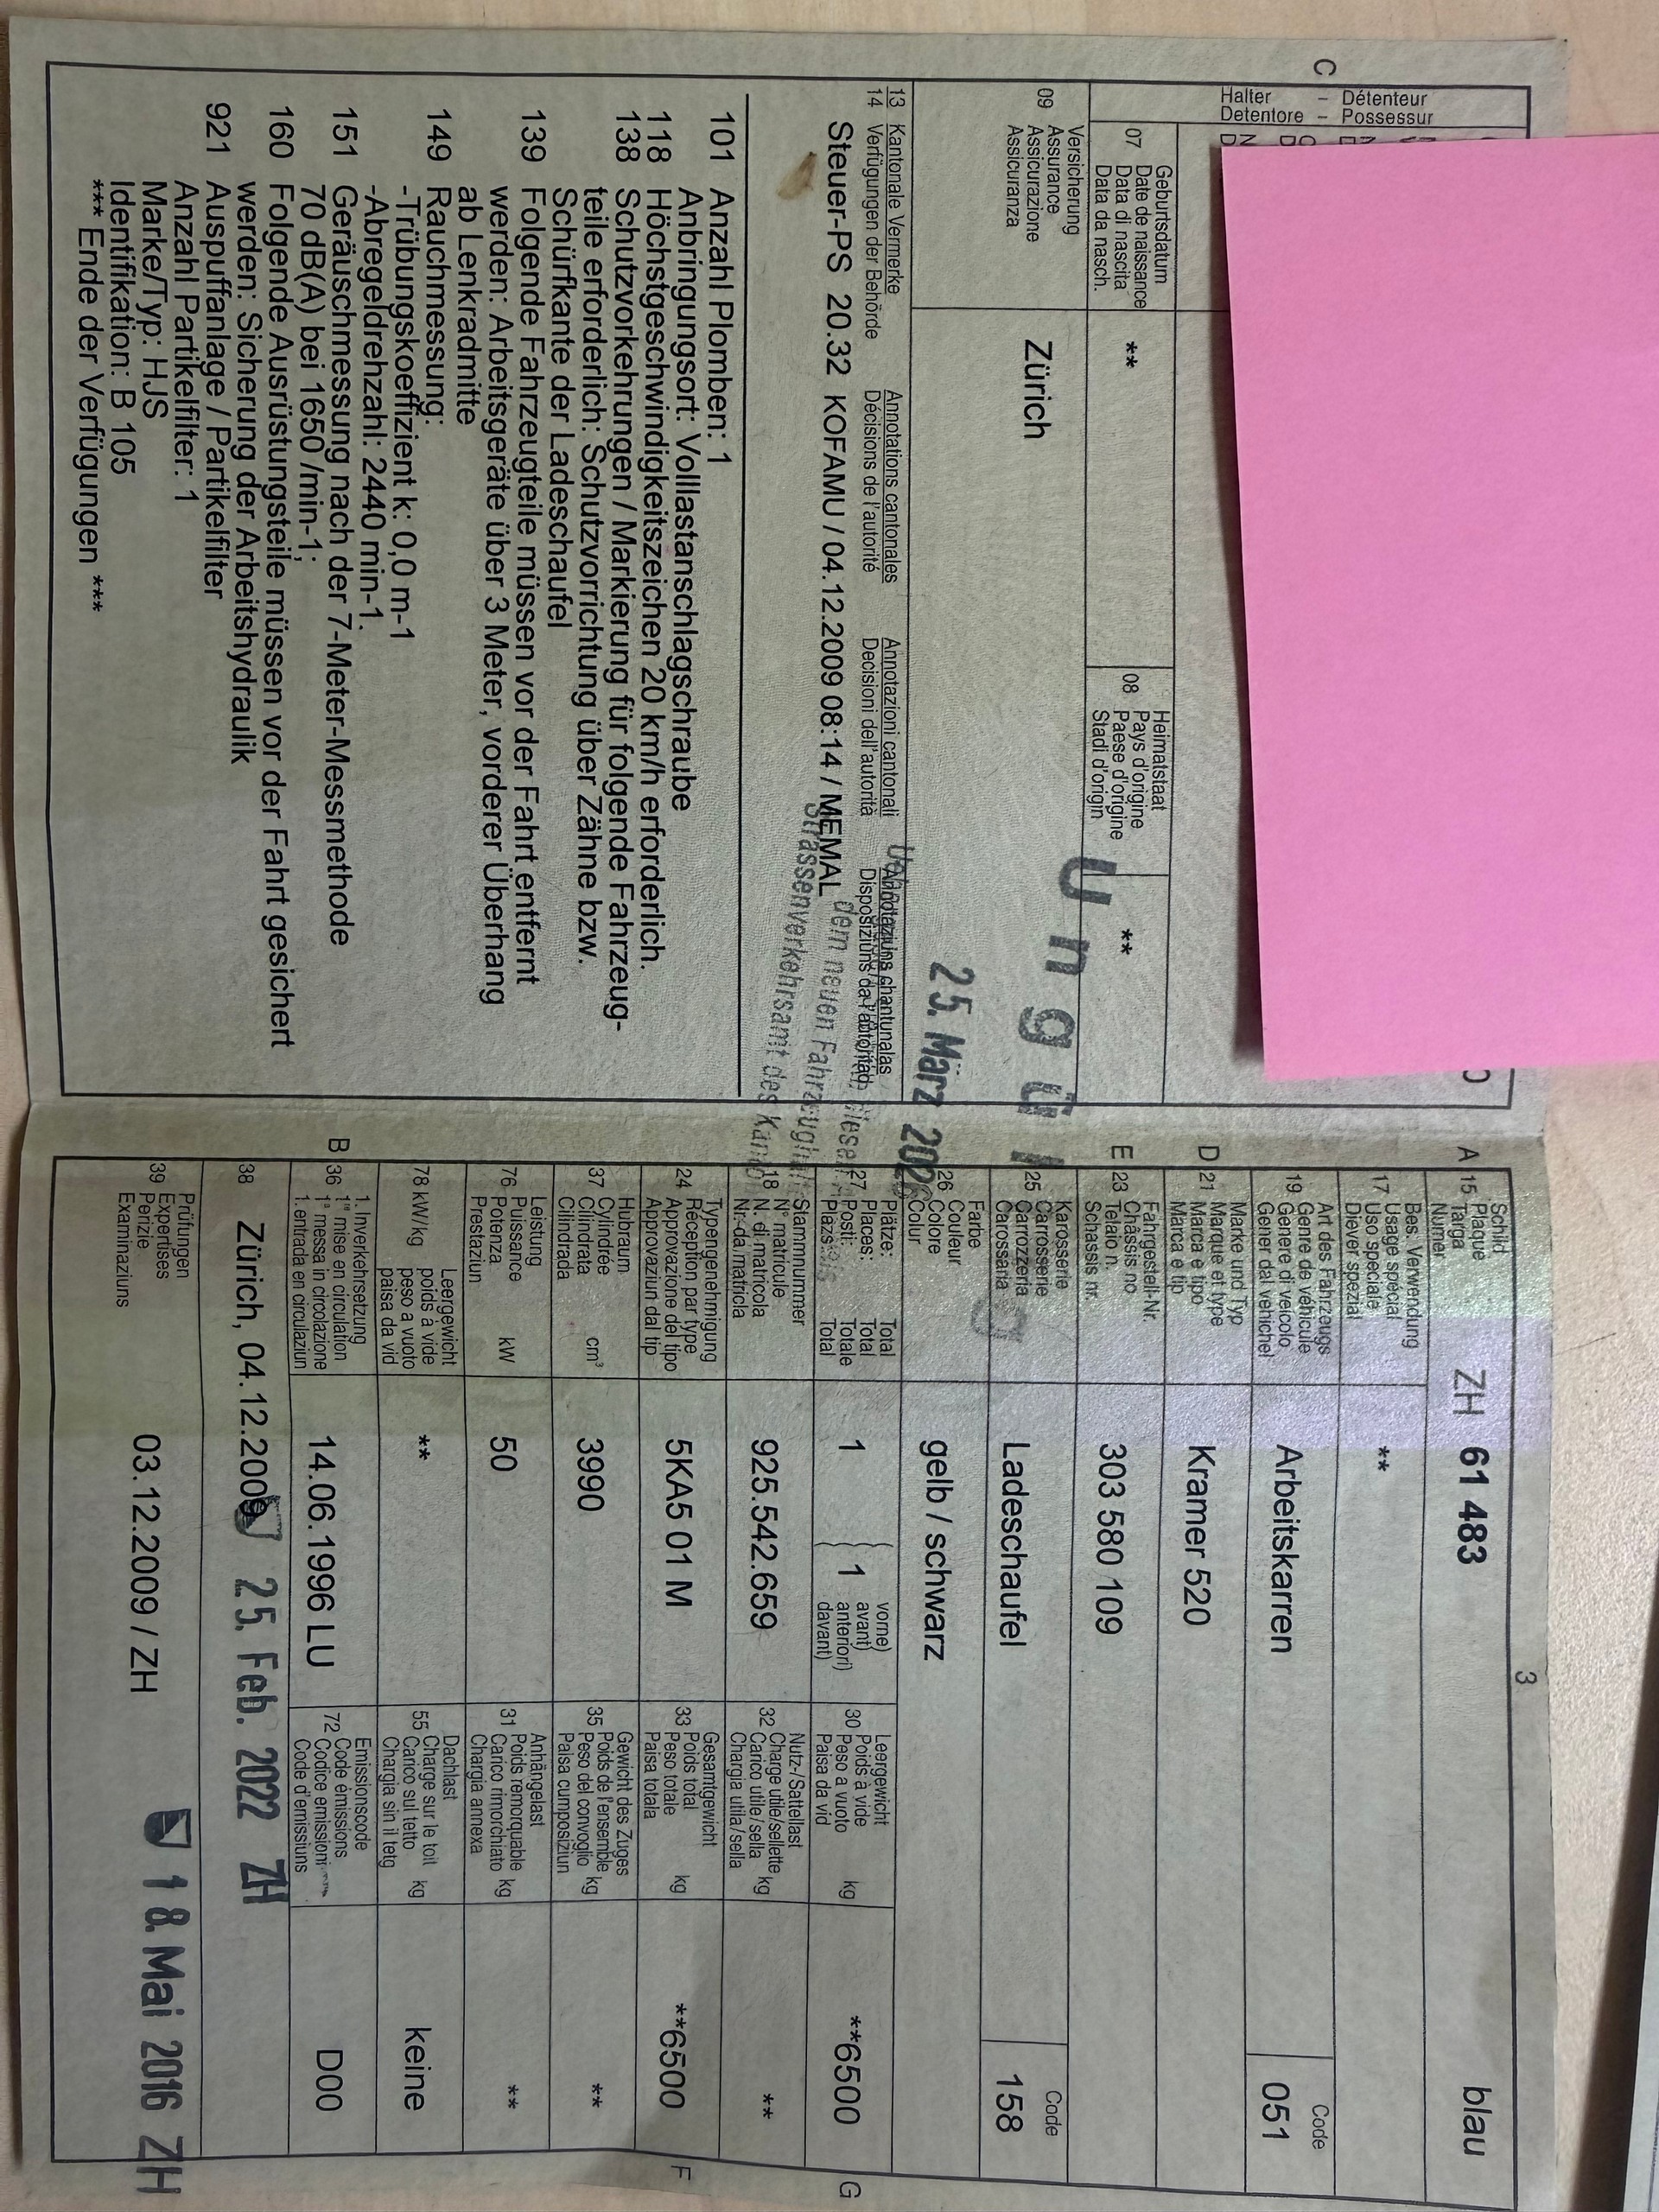 C
Halter - Détenteur
Detentore - Possessur
07 Geburtsdatum
Date de naissance
Data di nascita
Data da nasch.
**
08 Heimatstaat
Pays d'origine
Paese d'origine
Stadi d'origin
**
09 Versicherung
Assurance
Assicurazione
Assicuranza
Zürich
Ungü
25. März 202
13 Kantonale Vermerke Annotations cantonales Annotazioni cantonali Annotaziuns chantunalas
14 Verfügungen der Behörde Décisions de l'autorité Decisioni dell'autorità Disposiziuns da l'autoritad
Steuer-PS 20.32 KOFAMU / 04.12.2009 08:14 / MEMAL
dem neuen
Strassenverkehrsamt des
101 Anzahl Plomben: 1
Anbringungsort: Volllastanschlagschraube
118 Höchstgeschwindigkeitszeichen 20 km/h erforderlich.
138 Schutzvorkehrungen / Markierung für folgende Fahrzeug-
teile erforderlich: Schutzvorrichtung über Zähne bzw.
Schürfkante der Ladeschaufel
139 Folgende Fahrzeugteile müssen vor der Fahrt entfernt
werden: Arbeitsgeräte über 3 Meter, vorderer Überhang
ab Lenkradmitte
149 Rauchmessung:
-Trübungskoeffizient k: 0,0 m-1
-Abregeldrehzahl: 2440 min-1.
151 Geräuschmessung nach der 7-Meter-Messmethode
70 dB(A) bei 1650 /min-1;
160 Folgende Ausrüstungsteile müssen vor der Fahrt gesichert
werden: Sicherung der Arbeitshydraulik
921 Auspuffanlage / Partikelfilter
Anzahl Partikelfilter: 1
Marke/Typ: HJS
Identifikation: B 105
*** Ende der Verfügungen ***
3
A 15 Schild
Plaque
Targa
Numer
ZH 61 483 blau
17 Bes. Verwendung
Usage spécial
Uso speciale
Diever spezial
**
19 Art des Fahrzeugs
Genre de véhicule
Genere di veicolo
Gener dal vehichel
Arbeitskarren
Code
051
D 21 Marke und Typ
Marque et type
Marca e tipo
Marca e tip
Kramer 520
E 23 Fahrgestell-Nr.
Châssis no
Telaio n.
Schassis nr.
303 580 109
25 Karosserie
Carrosserie
Carrozzeria
Carossaria
Ladeschaufel
Code
158
26 Farbe
Couleur
Colore
Colur
gelb / schwarz
27 Plätze: Total
Places: Total
Posti: Totale
Plazs: Total
1
1
vorne)
avant)
anteriori)
davant)
30 Leergewicht
Poids à vide
Peso a vuoto kg
Paisa da vid
**6500
G
18 Stammnummer
N° matricule
N. di matricola
Nr. da matricla
925.542.659
32 Nutz-/Sattellast
Charge utile/sellette
Carico utile/sella kg
Chargia utila/sella
**
24 Typengenehmigung
Réception par type
Approvazione del tipo
Approvaziun dal tip
5KA5 01 M
33 Gesamtgewicht
Poids total
Peso totale kg
Paisa totala
**6500
F
37 Hubraum
Cylindrée
Cilindrata cm³
Cilindrada
3990
35 Gewicht des Zuges
Poids de l'ensemble
Peso del convoglio kg
Paisa cumposiziun
**
76 Leistung
Puissance
Potenza kW
Prestaziun
50
31 Anhängelast
Poids remorquable
Carico rimorchiato kg
Chargia annexa
**
78 kW/kg Leergewicht
poids à vide
peso a vuoto
paisa da vid
**
55 Dachlast
Charge sur le toit
Carico sul tetto kg
Chargia sin il tetg
keine
B 36 1. Inverkehrsetzung
1re mise en circulation
1a messa in circolazione
1. entrada en circulaziun
14.06.1996 LU
72 Emissionscode
Code émissions
Codice emissioni
Code d'emissiuns
D00
38 Zürich, 04.12.2009 25. Feb. 2022 ZH
39 Prüfungen
Expertises
Perizie
Examinaziuns
03.12.2009 / ZH 18. Mai 2016 ZH